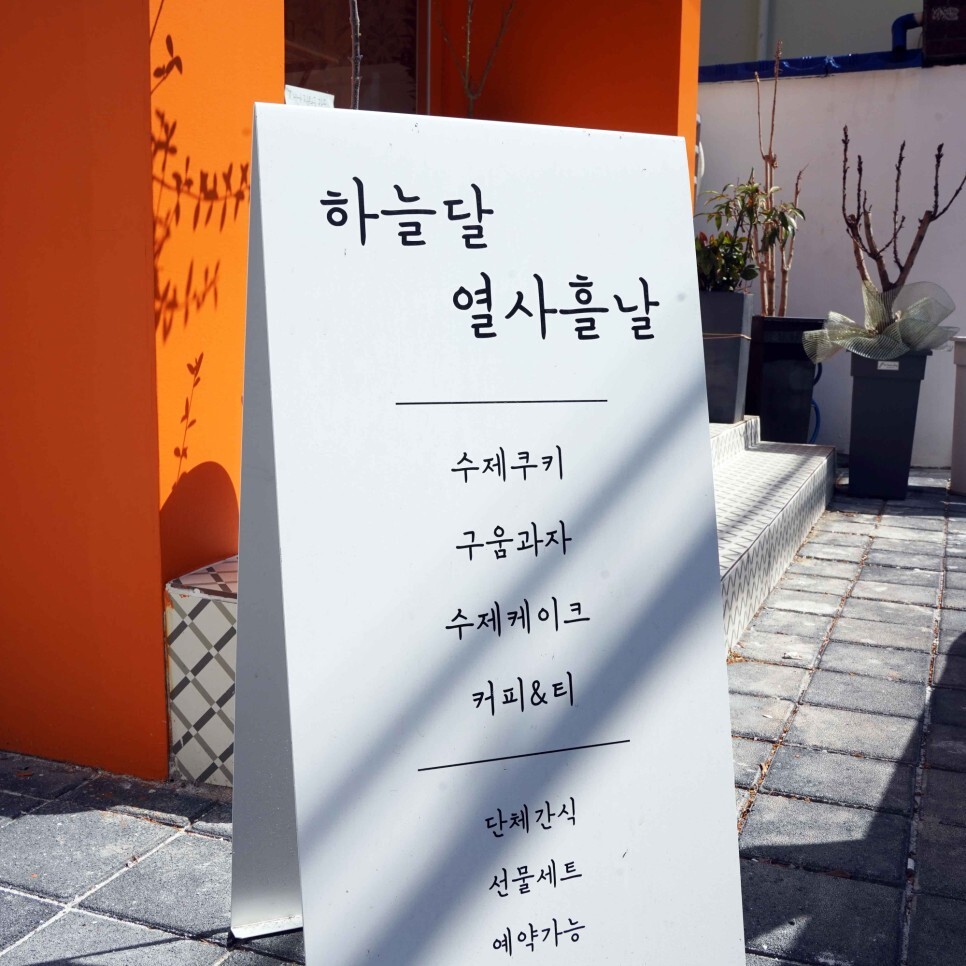 하늘달
열사흘날
수제쿠키
구움과자
수제케이크
커피&티
단체간식
선물세트
예약가능